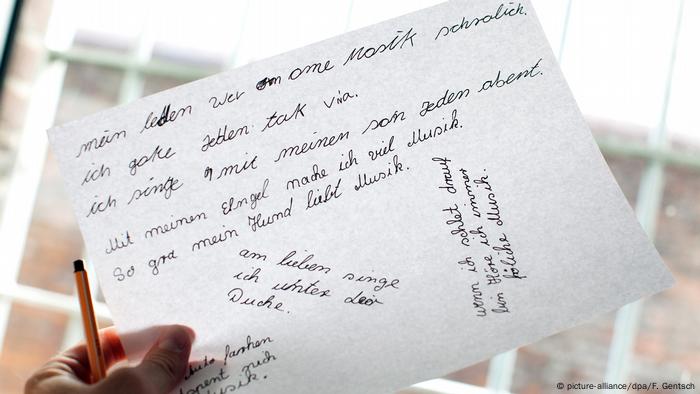 mein leben wer ome Mosik schralich.
ich goke Jeden tak Viva.
ich singe mit meinen son Jeden abent.
Mit meinen Engel mache ich viel Musik.
So gra mein Hund liebt Musik.
am lieben singe
ich unter der
Duche.
wenn ich schlet drauf
bin Höre ich immer
föliche Musik.
Auto farhen
mich
Musik.
© picture-alliance/dpa/F. Gentsch